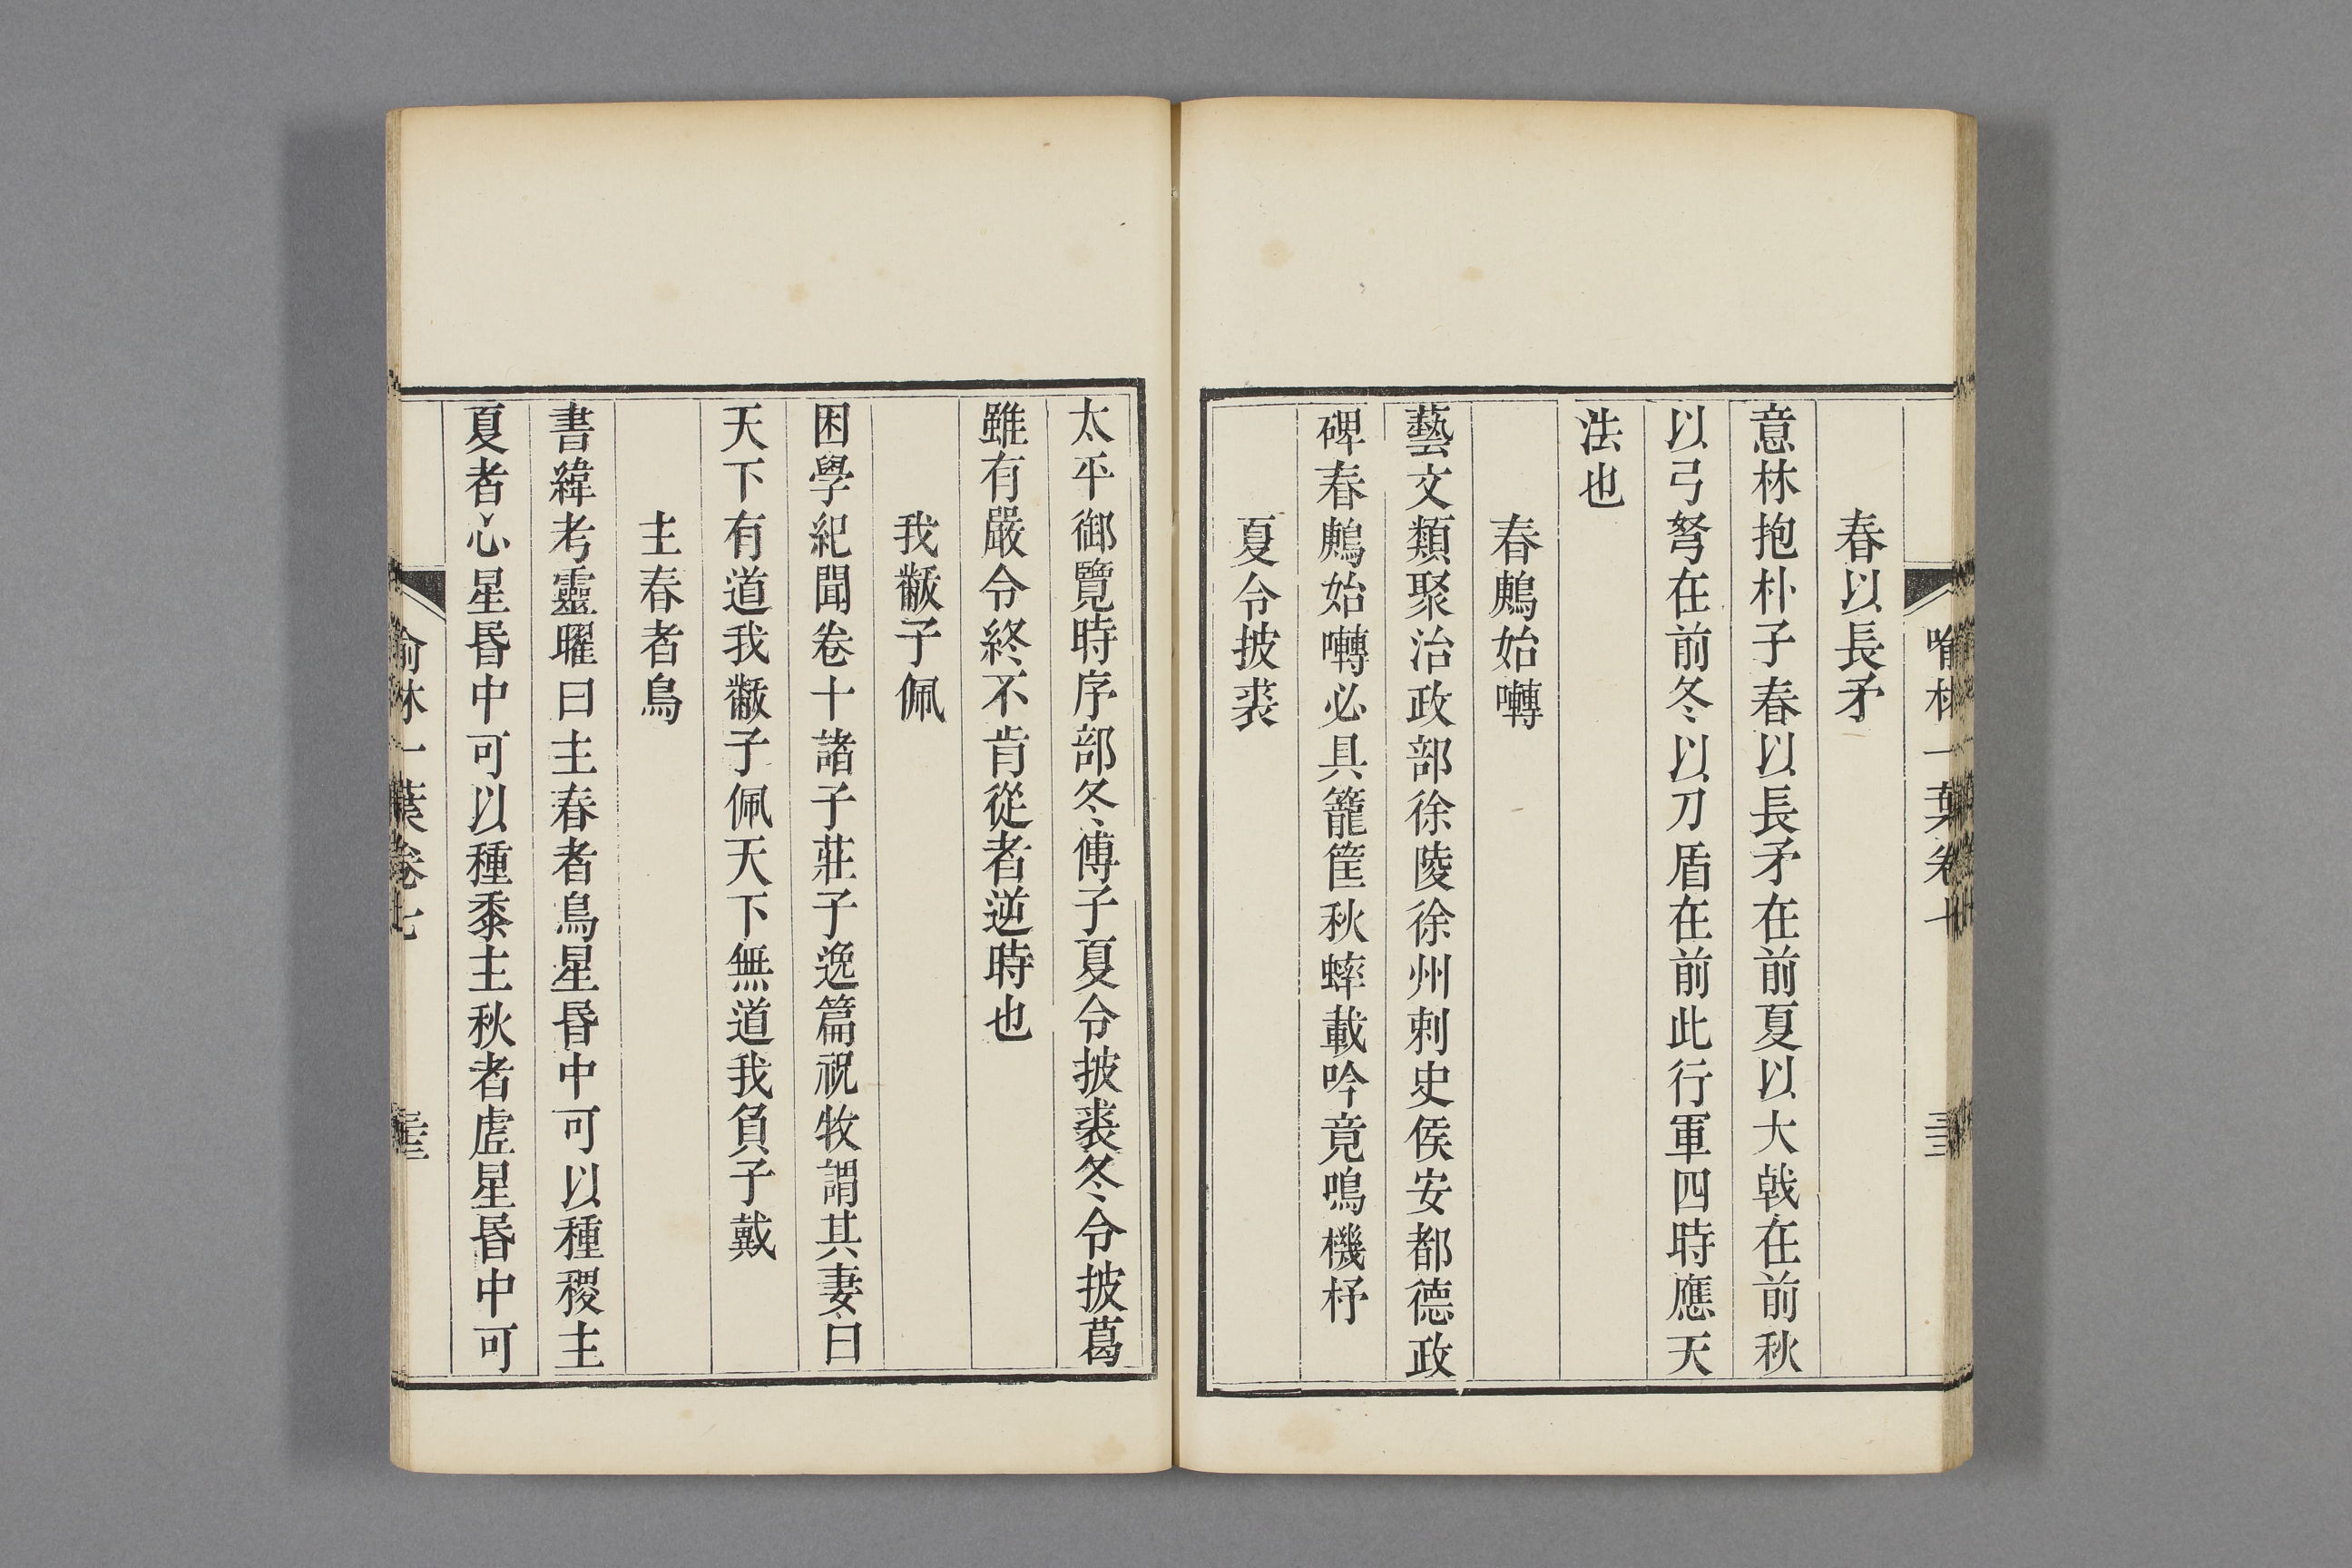 春以長矛
意林抱朴子春以長矛在前夏以大戟在前秋
以弓弩在前冬以刀盾在前此行軍四時應天
法也
春鶊始囀
藝文類聚治政部徐陵徐州刺史侯安都德政
碑春鶊始囀必具籠筐秋蟀載吟竟鳴機杼
夏令披裘
太平御覽時序部冬傅子夏令披裘冬令披葛
雖有嚴令終不肯從者逆時也
我黻子佩
困學紀聞卷十諸子莊子逸篇祝牧謂其妻曰
天下有道我黻子佩天下無道我負子戴
主春者鳥
書緯考靈曜曰主春者鳥星昏中可以種稷主
夏者心星昏中可以種黍主秋者虛星昏中可
喻林一葉卷七